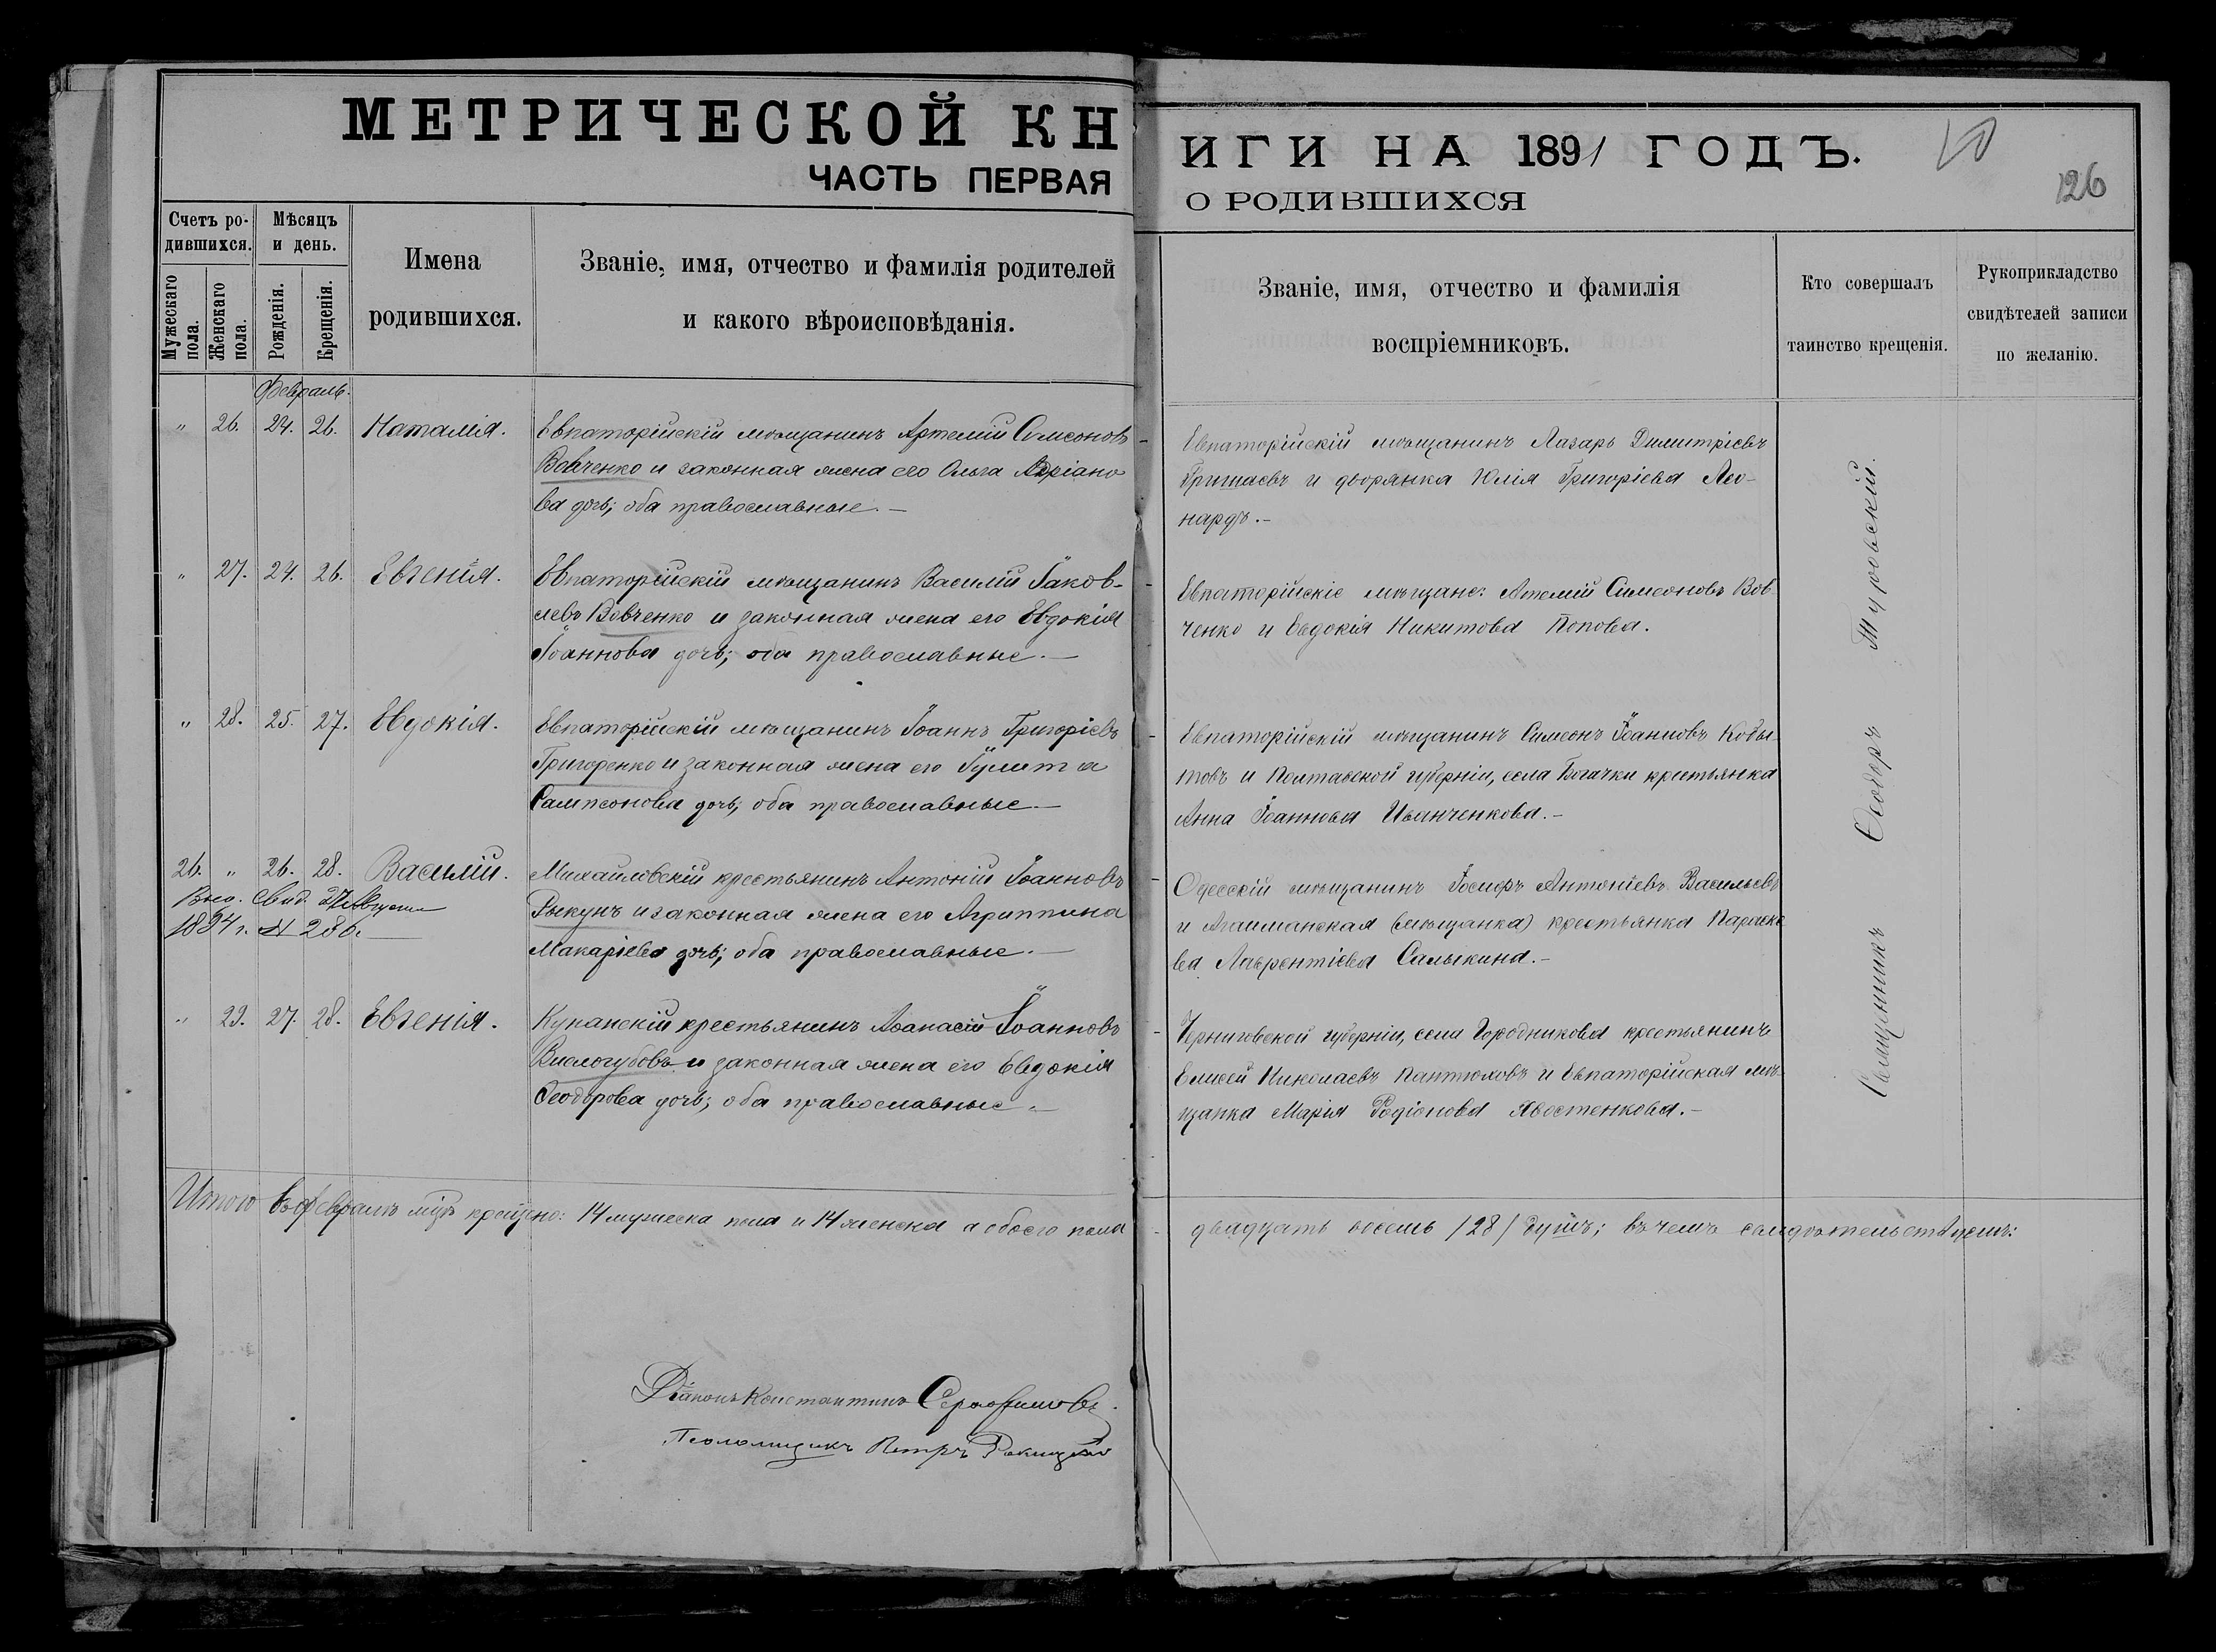 МЕТРИЧЕСКОЙ КН
ЧАСТЬ ПЕРВАЯ
ИГИ НА 1891 ГОДЪ.
О РОДИВШИХСЯ
126
Счетъ ро-
дившихся.
Мужескаго
пола.
Женскаго
пола.
Мѣсяцъ
и день.
Рожденія.
Крещенія.
Имена
родившихся.
Званіе, имя, отчество и фамилія родителей
и какого вѣроисповѣданія.
Званіе, имя, отчество и фамилія
воспріемниковъ.
Кто совершалъ
таинство крещенія.
Рукоприкладство
свидѣтелей записи
по желанію.
Февраль.
" 26. 24. 26. Наталія.
Евпаторійскій мѣщанинъ Артемій Симеоновъ
Вовченко и законная жена его Ольга Адріано
ва дочь; оба православные.—
Евпаторійскій мѣщанинъ Лазарь Димитріевъ
Гришаевъ и дворянка Юлія Григоріева Лео-
нардъ.—
" 27. 24. 26. Евгенія.
Евпаторійскій мѣщанинъ Василій Іаков-
левъ Вовченко и законная жена его Евдокія
Іоаннова дочь; оба православные.—
Евпаторійскіе мѣщане: Артемій Симеоновъ Вов-
ченко и Евдокія Никитова Попова.
" 28. 25. 27. Евдокія.
Евпаторійскій мѣщанинъ Іоаннъ Григоріевъ
Григоренко и законная жена его Іулитта
Сампсонова дочь; оба православные.—
Евпаторійскій мѣщанинъ Симеонъ Іоанновъ Кобы-
товъ и Полтавской губерніи, села Богачки крестьянка
Анна Іоаннова Иванченкова.—
26. " 26. 28. Василій.
Выд. Свид. 27 Августа
1894 г. № 286.
Михайловскій крестьянинъ Антоній Іоанновъ
Рыкунъ и законная жена его Агриппина
Макаріева дочь; оба православные.—
Одесскій мѣщанинъ Іосифъ Антоніевъ Васильевъ
и Агайманская (мѣщанка) крестьянка Параске
ва Лаврентіева Салыкина.—
" 29. 27. 28. Евгенія.
Куланскій крестьянинъ Аѳанасій Іоанновъ
Вислогубовъ и законная жена его Евдокія
Ѳеодорова дочь; оба православные.—
Черниговской губерніи, села Городникова крестьянинъ
Елисей Николаевъ Пантюховъ и Евпаторійская мѣ-
щанка Марія Родіонова Хвостенкова.—
Священникъ Ѳеодоръ Туровскій.
Итого въ февралѣ мцѣ крещено: 14 мужеска пола и 14 женска а обоего пола
двадцать восемь /28/ душъ; въ чемъ свидѣтельствуемъ:
Діаконъ Константинъ Серафимовъ.
Псаломщикъ Петръ